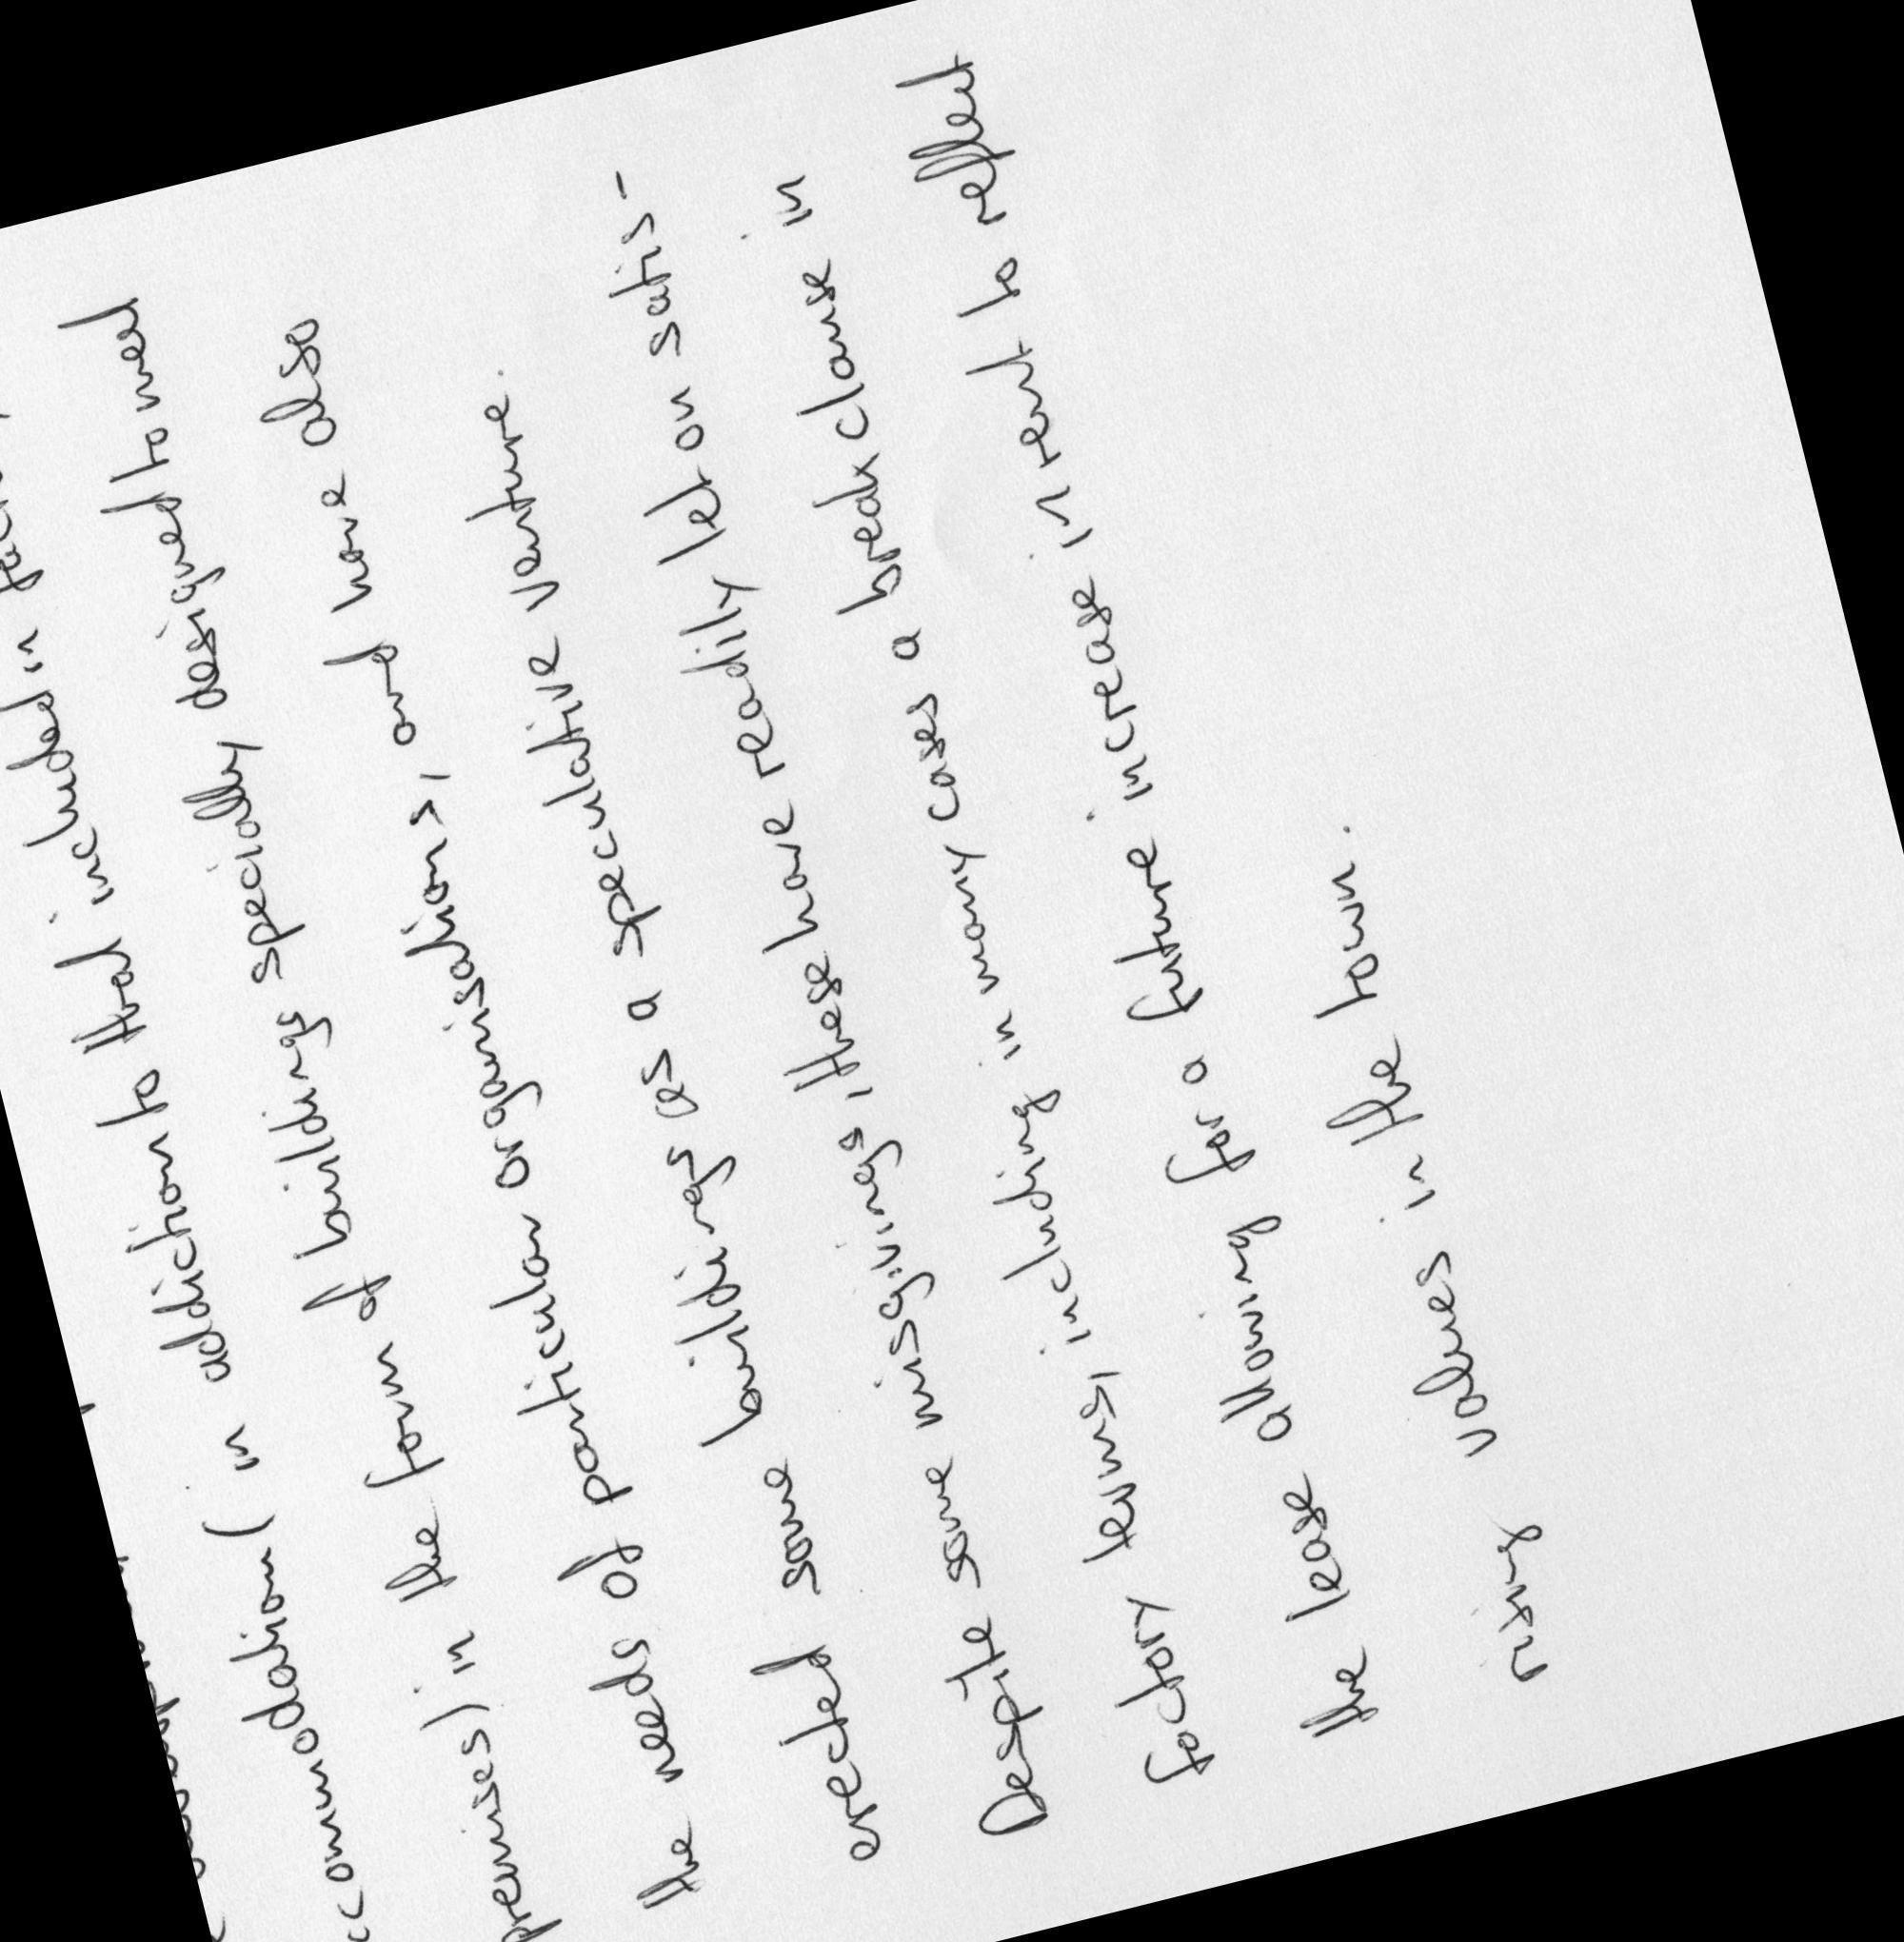 ccommodation ( in addition to that included in
premises) in the form of buildings specially designed to meet
the needs of particular organisations, and have also
erected some buildings as a speculative venture.
Despite some misgivings, these have readily let on satis-
factory terms, including in many cases a break clause in
the lease allowing for a future increase in rent to reflect
rising values in the town.